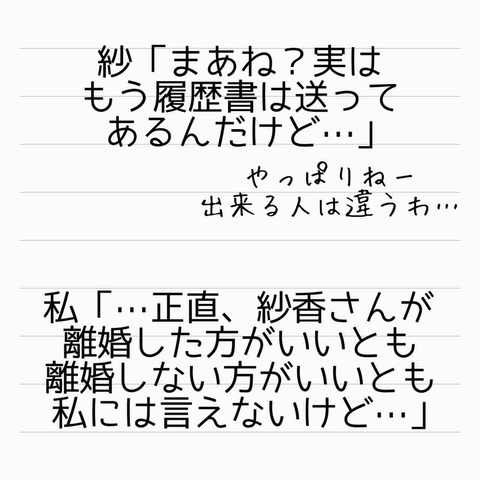 紗「まあね？実は
もう履歴書は送って
あるんだけど…」
やっぱりねー
出来る人は違うわ…
私「…正直、紗香さんが
離婚した方がいいとも
離婚しない方がいいとも
私には言えないけど…」